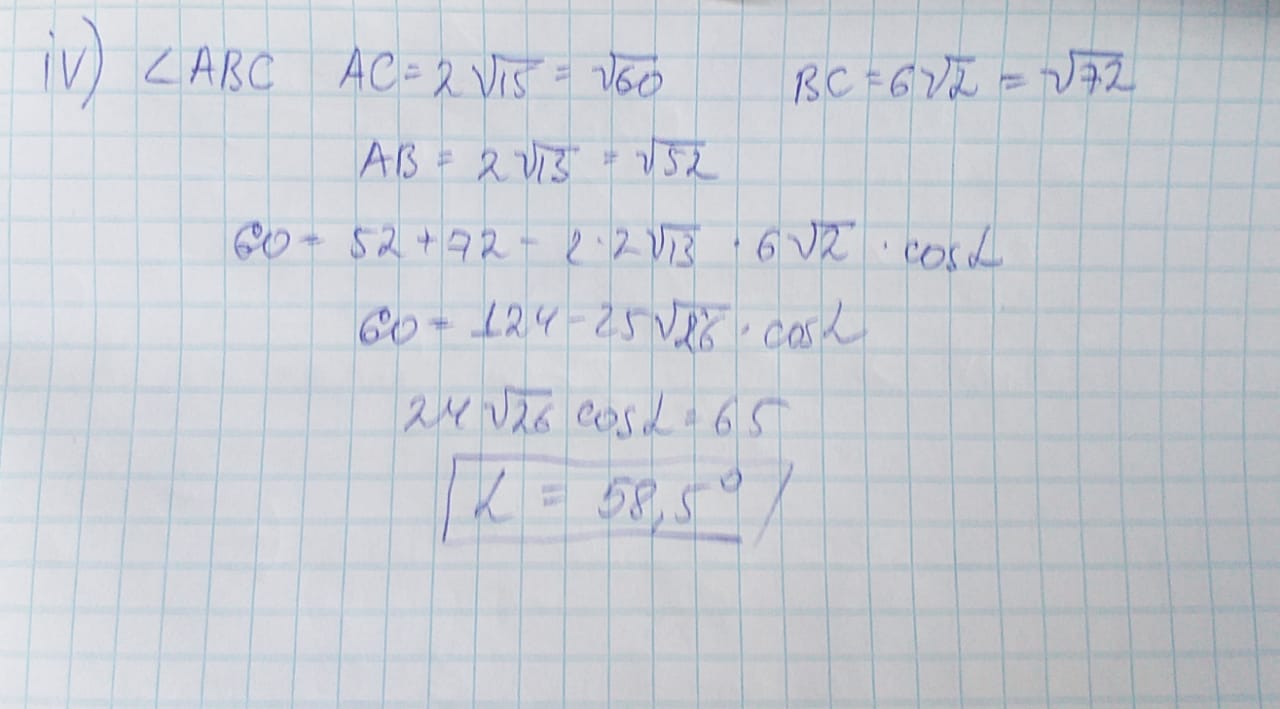 iv) ∠ABC AC = 2√15 = √60 BC = 6√2 = √72
AB = 2√13 = √52
60 = 52 + 72 - 2·2√13 · 6√2 · cosα
60 = 124 - 25√26 · cosα
24√26 cosα = 65
α = 58,5°